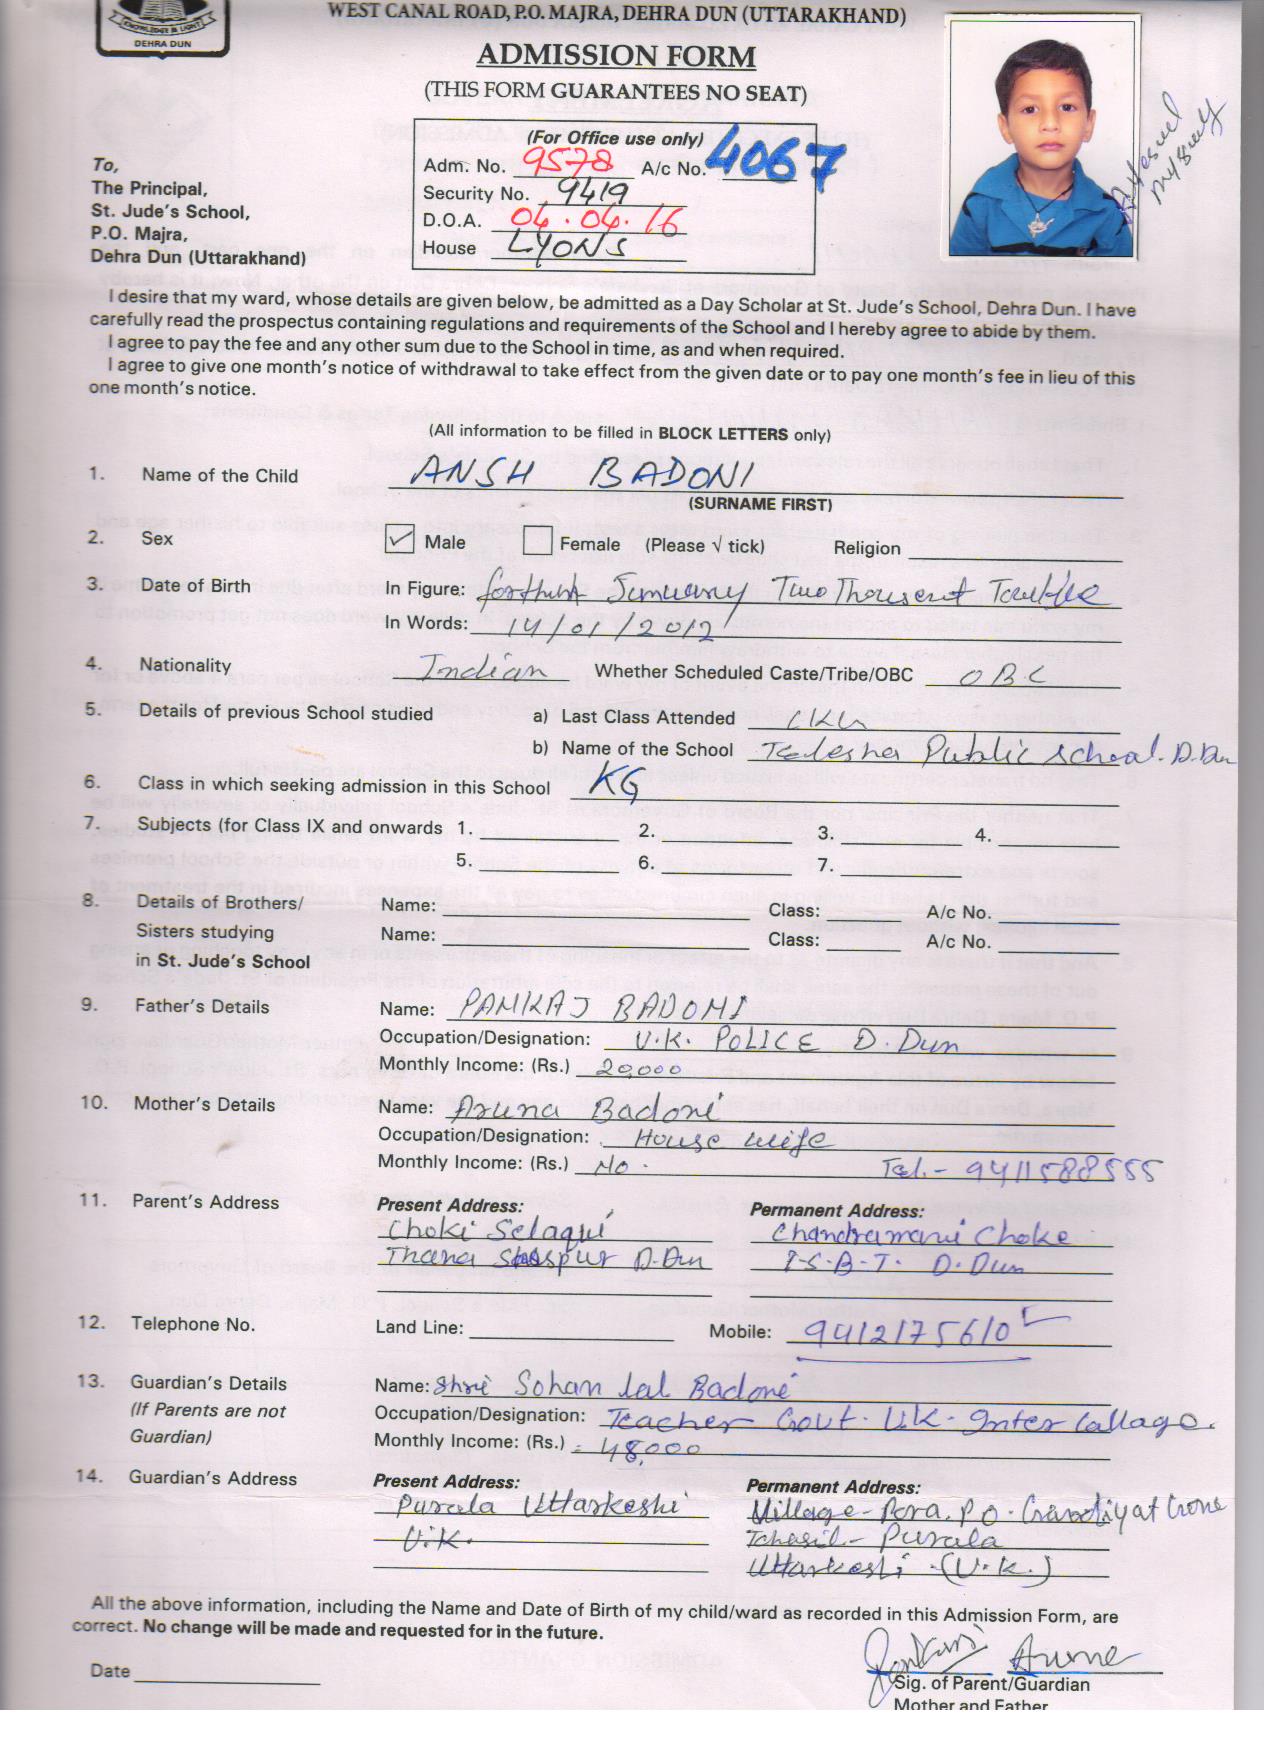 KNOWLEDGE IS LIGHT
DEHRA DUN
WEST CANAL ROAD, P.O. MAJRA, DEHRA DUN (UTTARAKHAND)
ADMISSION FORM
(THIS FORM GUARANTEES NO SEAT)
(For Office use only)
Adm. No. 9578 A/c No. 4067
Security No. 9419
D.O.A. 04.04.16
House LYONS
To,
The Principal,
St. Jude's School,
P.O. Majra,
Dehra Dun (Uttarakhand)
I desire that my ward, whose details are given below, be admitted as a Day Scholar at St. Jude's School, Dehra Dun. I have
carefully read the prospectus containing regulations and requirements of the School and I hereby agree to abide by them.
I agree to pay the fee and any other sum due to the School in time, as and when required.
I agree to give one month's notice of withdrawal to take effect from the given date or to pay one month's fee in lieu of this
one month's notice.
(All information to be filled in BLOCK LETTERS only)
1. Name of the Child ANSH BADONI
(SURNAME FIRST)
2. Sex Male Female (Please √ tick) Religion
3. Date of Birth In Figure: January Two Thousent
In Words: 14/01/2012
4. Nationality Indian Whether Scheduled Caste/Tribe/OBC OBC
5. Details of previous School studied a) Last Class Attended LKG
b) Name of the School Public School. D.Dun
6. Class in which seeking admission in this School KG
7. Subjects (for Class IX and onwards 1. 2. 3. 4.
5. 6. 7.
8. Details of Brothers/ Name: Class: A/c No.
Sisters studying Name: Class: A/c No.
in St. Jude's School
9. Father's Details Name: PANKAJ BADONI
Occupation/Designation: U.K. POLICE D.Dun
Monthly Income: (Rs.) 20,000
10. Mother's Details Name: Aruna Badoni
Occupation/Designation: House wife
Monthly Income: (Rs.) No. Tel.- 9411588555
11. Parent's Address Present Address: Permanent Address:
Choki Selaqui Chandramani Choke
Thana D.Dun I.S.B.T. D.Dun
12. Telephone No. Land Line: Mobile: 9412175610
13. Guardian's Details Name: Shri Sohan lal Badoni
(If Parents are not Occupation/Designation: Teacher Govt. U.K. Inter Collage.
Guardian) Monthly Income: (Rs.) 48,000
14. Guardian's Address Present Address: Permanent Address:
Purala Uttarkashi Village- Pora, P.O.
U.K. Tehasil- Purala
Uttarkashi (U.K.)
All the above information, including the Name and Date of Birth of my child/ward as recorded in this Admission Form, are
correct. No change will be made and requested for in the future.
Aruna
Date Sig. of Parent/Guardian
Mother and Father